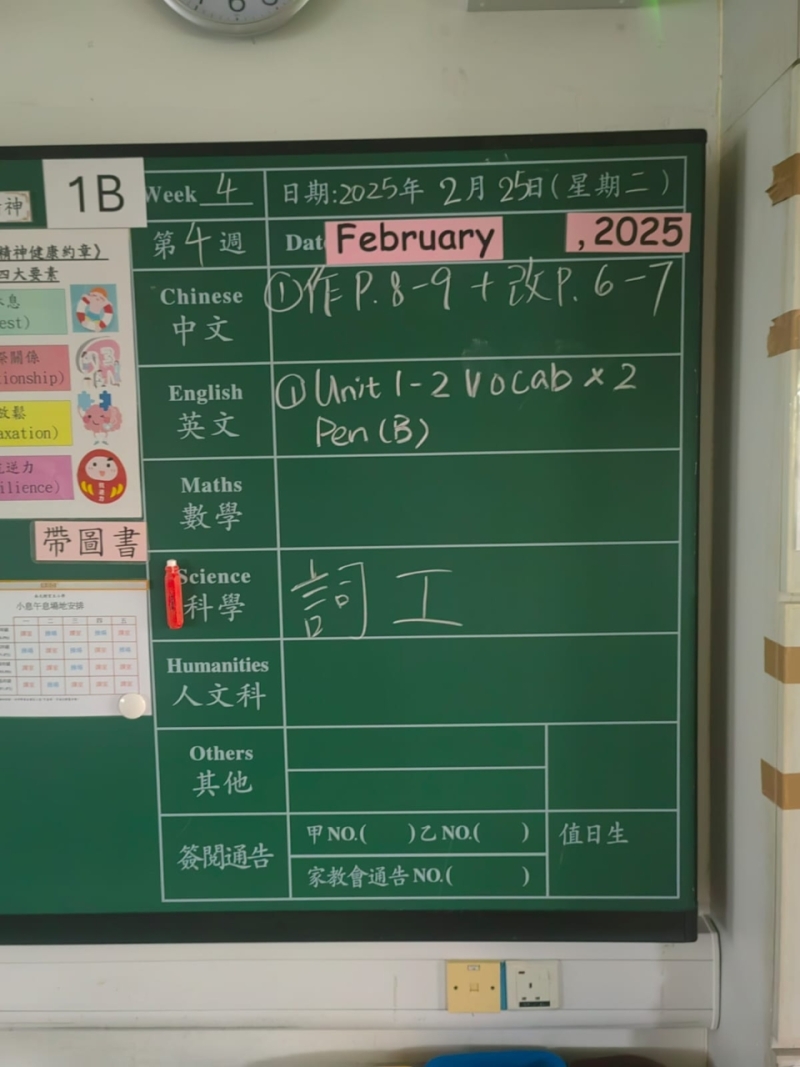 6
1B
神
精神健康約章》
四大要素
息
est)
關係
tionship)
放鬆
axation)
逆力
ilience)
帶圖書
小息午息場地安排
一 二 三 四 五
Week 4
日期:2025年 2月 25日(星期二)
第4週
Dat
February
, 2025
Chinese
中文
①作 P. 8-9 + 改 P. 6-7
English
英文
① Unit 1-2 Vocab × 2
Pen (B)
Maths
數學
Science
科學
詞工
Humanities
人文科
Others
其他
簽閱通告
甲NO.( )乙NO.( )
家教會通告NO.( )
值日生